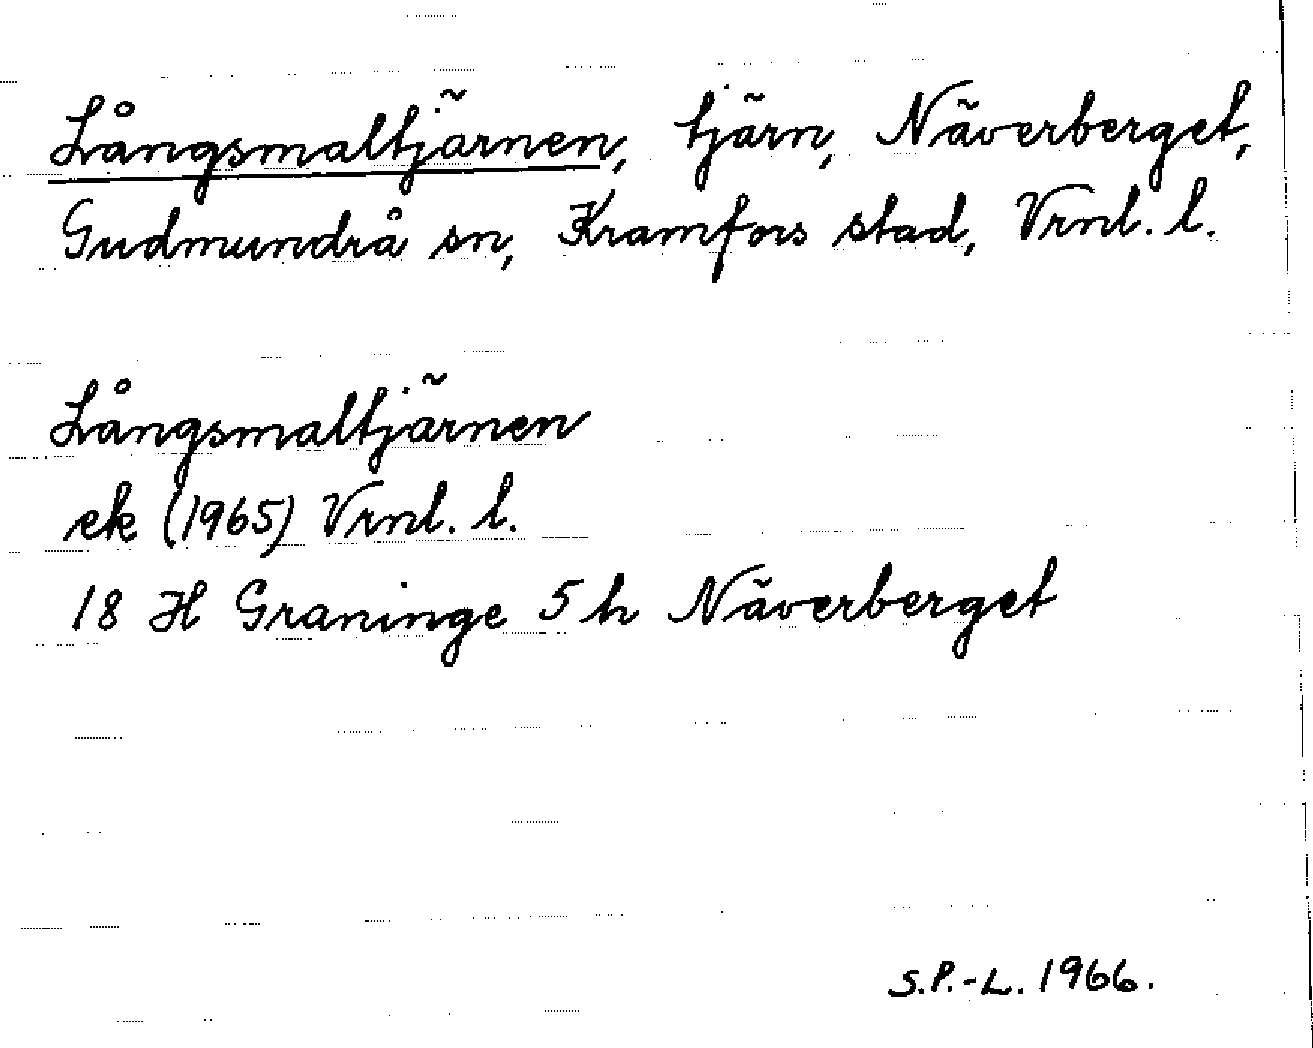 Långsmaltjärnen, tjärn, Näverberget,
Gudmundrå sn, Kramfors stad, Vrnl. l.
Långsmaltjärnen
ek (1965) Vrnl. l.
18 H Graninge 5 h Näverberget
S.P.-L. 1966.